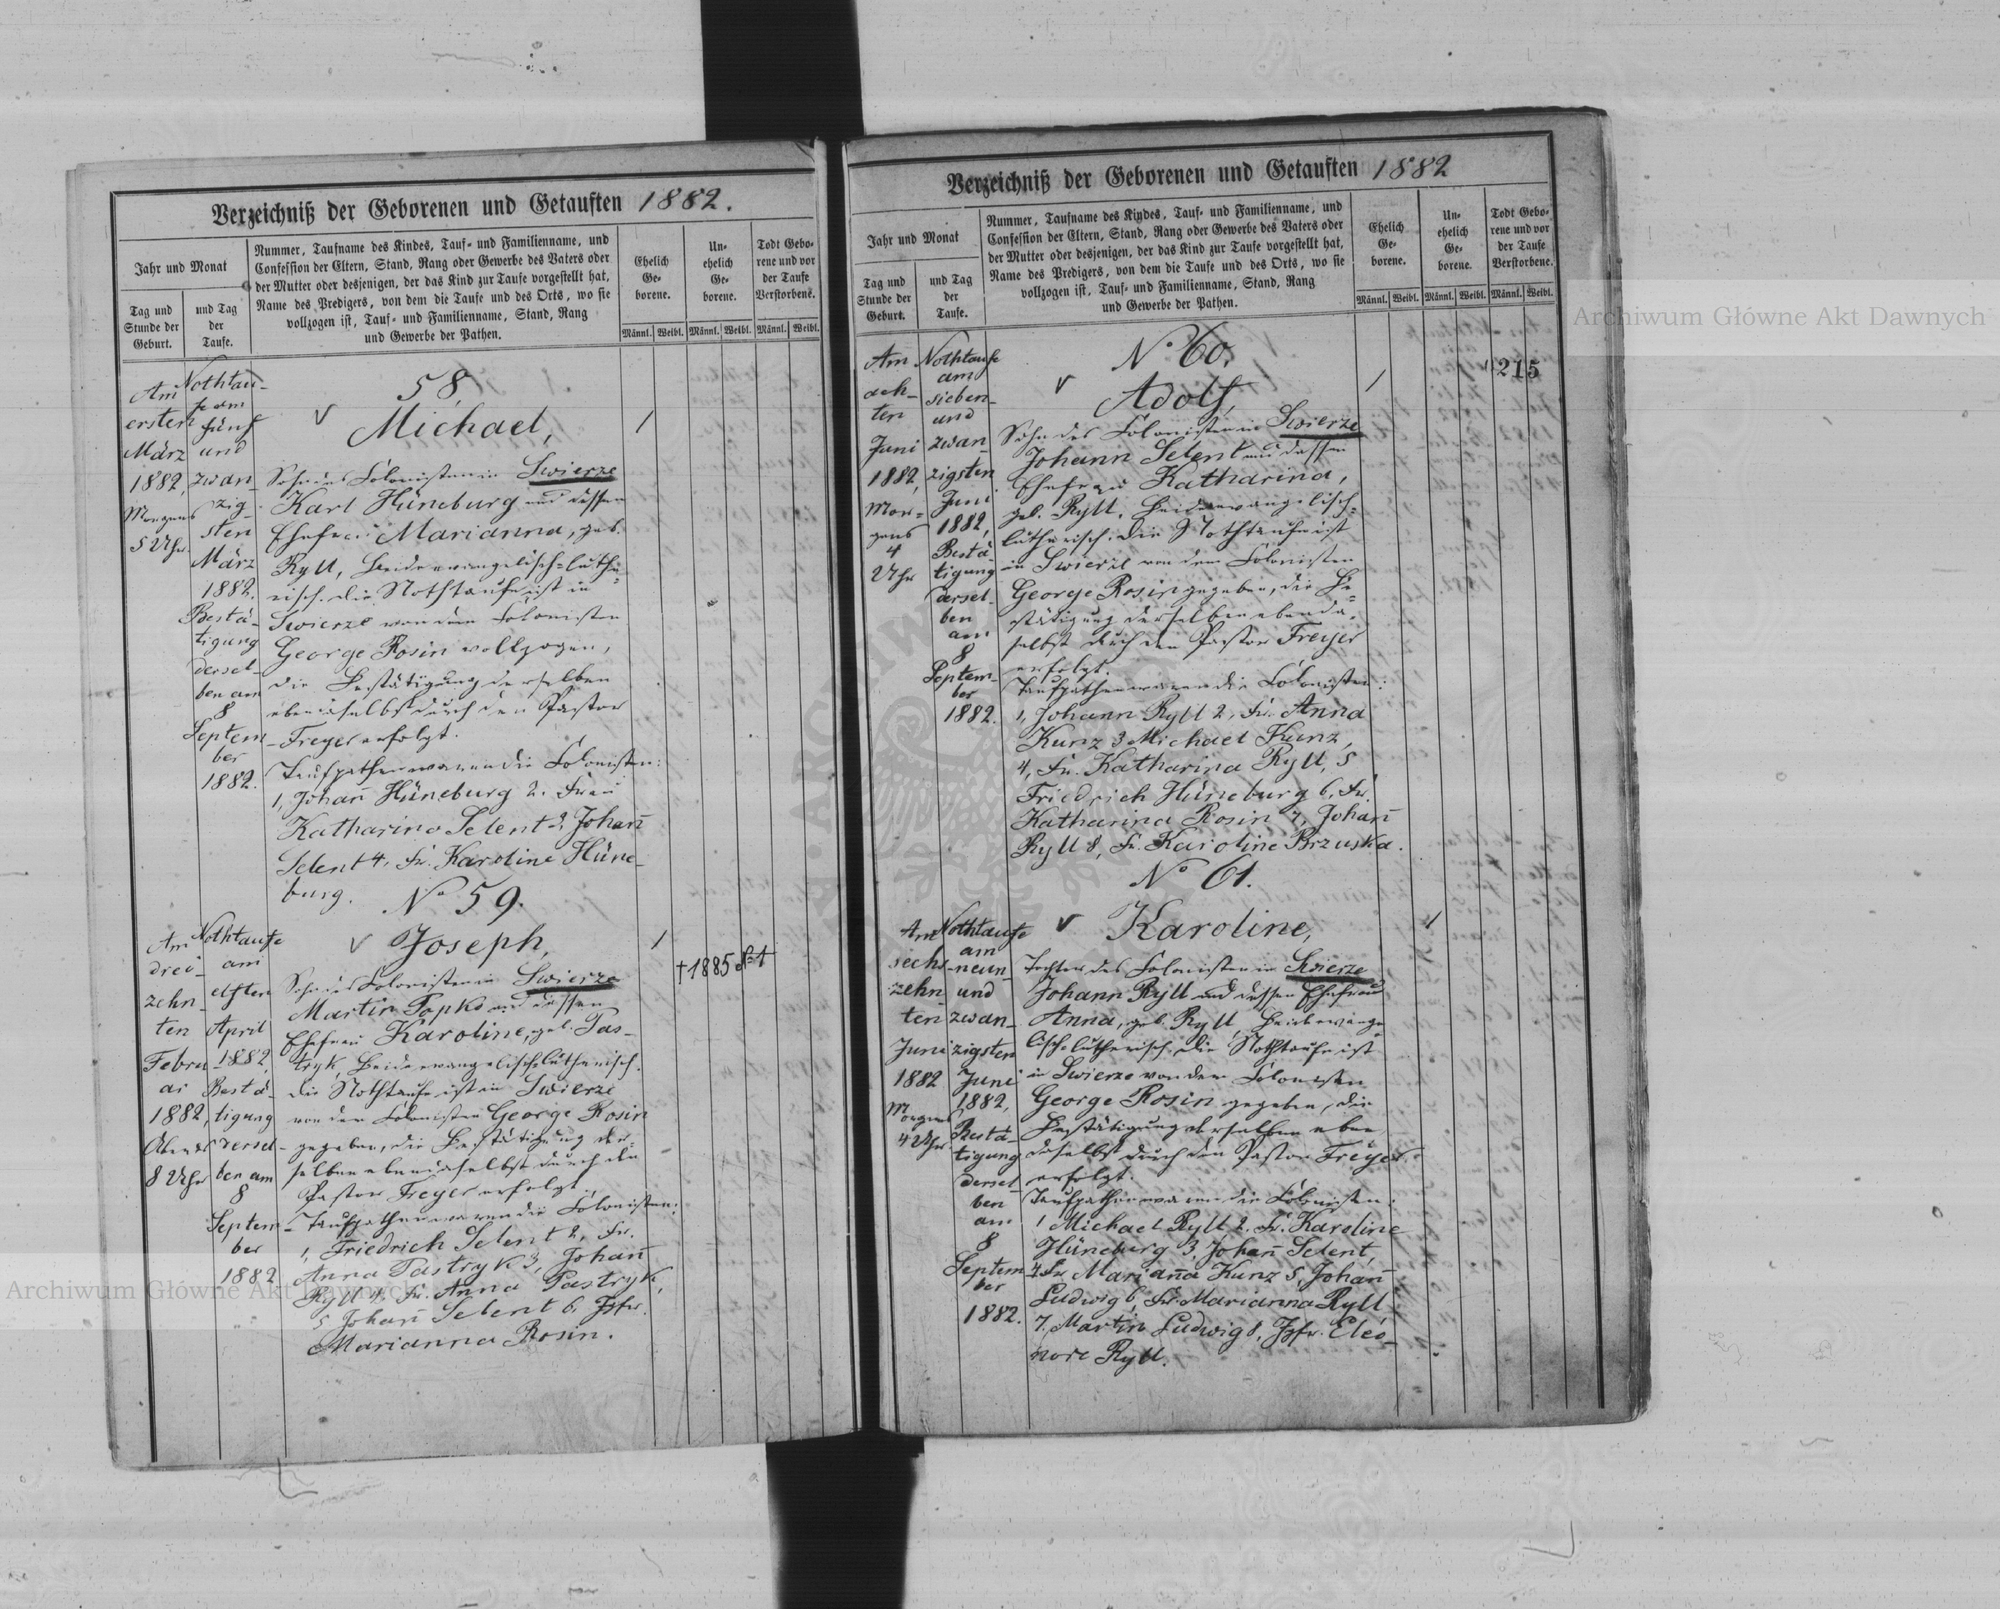 Verzeichniß der Geborenen und Getauften 1882.
Jahr und Monat
Tag und
Stunde der
Geburt.
und Tag
der
Taufe.
Nummer, Taufname des Kindes, Tauf- und Familienname, und
Confession der Eltern, Stand, Rang oder Gewerbe des Vaters oder
der Mutter oder desjenigen, der das Kind zur Taufe vorgestellt hat,
Name des Predigers, von dem die Taufe und des Orts, wo sie
vollzogen ist, Tauf- und Familienname, Stand, Rang
und Gewerbe der Pathen.
Ehelich
Ge-
borene.
Un-
ehelich
Ge-
borene.
Todt Gebo-
rene und vor
der Taufe
Verstorbene.
Männl. Weibl. Männl. Weibl. Männl. Weibl.
Am
ersten
März
1882,
Morgens
5 Uhr
Nothtau-
fe am
fünf
und
zwan-
zig-
sten
März
1882.
Bestä-
tigung
dersel-
ben am
8
Septem-
ber
1882.
58
Michael,
Sohn des Colonisten in Swierze
Karl Hüneburg und dessen
Ehefrau Marianna, geb.
Ryll, Beide evangelisch-luthe-
risch. Die Nothtaufe ist in
Swierze von dem Colonisten
George Rosin vollzogen,
die Bestätigung derselben
ebendaselbst durch den Pastor
Freyer erfolgt.
Taufpathen waren die Colonisten:
1, Johañ Hüneburg 2. Frau
Katharina Selent 3, Johañ
Selent 4, Fr. Karoline Hüne-
burg.
1
Am
drei-
zehn-
ten
Febru-
ar
1882,
Abends
8 Uhr
Nothtaufe
am
elften
April
1882,
Bestä-
tigung
dersel-
ben am
8
Septem-
ber
1882
No 59.
Joseph,
Sohn des Colonisten in Swierze
Martin Popko und dessen
Ehefrau Karoline, geb. Pas-
tryk, Beide evangelisch-lutherisch.
Die Nothtaufe ist in Swierze
von dem Colonisten George Rosin
gegeben, die Bestätigung der-
selben ebendaselbst durch den
Pastor Freyer erfolgt.
Taufpathen waren die Colonisten:
1, Friedrich Selent 2, Fr.
Anna Pastryk 3, Johañ
Ryll 4, Fr. Anna Pastryk,
5 Johañ Selent 6, Jgfr.
Marianna Rosin.
1
†1885 No 1
Verzeichniß der Geborenen und Getauften 1882
Jahr und Monat
Tag und
Stunde der
Geburt.
und Tag
der
Taufe.
Nummer, Taufname des Kindes, Tauf- und Familienname, und
Confession der Eltern, Stand, Rang oder Gewerbe des Vaters oder
der Mutter oder desjenigen, der das Kind zur Taufe vorgestellt hat,
Name des Predigers, von dem die Taufe und des Orts, wo sie
vollzogen ist, Tauf- und Familienname, Stand, Rang
und Gewerbe der Pathen.
Ehelich
Ge-
borene.
Un-
ehelich
Ge-
borene.
Todt Gebo-
rene und vor
der Taufe
Verstorbene.
Männl. Weibl. Männl. Weibl. Männl. Weibl.
215
Am
ach-
ten
Juni
1882,
Mor-
gens
4
Uhr
Nothtaufe
am
sieben-
und
zwan-
zigsten
Juni
1882,
Bestä-
tigung
dersel-
ben
am
8
Septem-
ber
1882.
No 60.
Adolf,
Sohn des Colonisten in Swierze
Johann Selent und dessen
Ehefrau Katharina,
geb. Ryll, Beide evangelisch-
lutherisch. Die Nothtaufe ist
in Swierze von dem Colonisten
George Rosin gegeben, die Be-
stätigung derselben ebenda-
selbst durch den Pastor Freyer
erfolgt.
Taufpathen waren die Colonisten:
1, Johann Ryll 2, Fr. Anna
Kunz 3 Michael Kunz,
4, Fr. Katharina Ryll, 5
Friedrich Hüneburg 6, Fr.
Katharina Rosin 7, Johañ
Ryll 8, Fr. Karoline Brzuska.
1
Am
sech-
zehn-
ten
Juni
1882
Morgens
4 Uhr
Nothtaufe
am
neun-
und
zwan-
zigsten
Juni
1882,
Bestä-
tigung
dersel-
ben
am
8
Septem-
ber
1882.
No 61.
Karoline,
Tochter des Colonisten in Swierze
Johann Ryll und dessen Ehefrau
Anna, geb. Ryll, Beide evange-
lisch-lutherisch. Die Nothtaufe ist
in Swierze von dem Colonisten
George Rosin gegeben, die
Bestätigung derselben eben-
daselbst durch den Pastor Freyer
erfolgt.
Taufpathen waren die Colonisten:
1 Michael Ryll 2. Fr. Karoline
Hüneburg 3, Johañ Selent,
4, Fr. Mariaña Kunz 5, Johañ
Ludwig 6, Fr. Marianna Ryll
7, Martin Ludwig 8, Jgfr. Eleo-
nore Ryll.
1
Archiwum Główne Akt Dawnych
Archiwum Główne Akt Dawnych